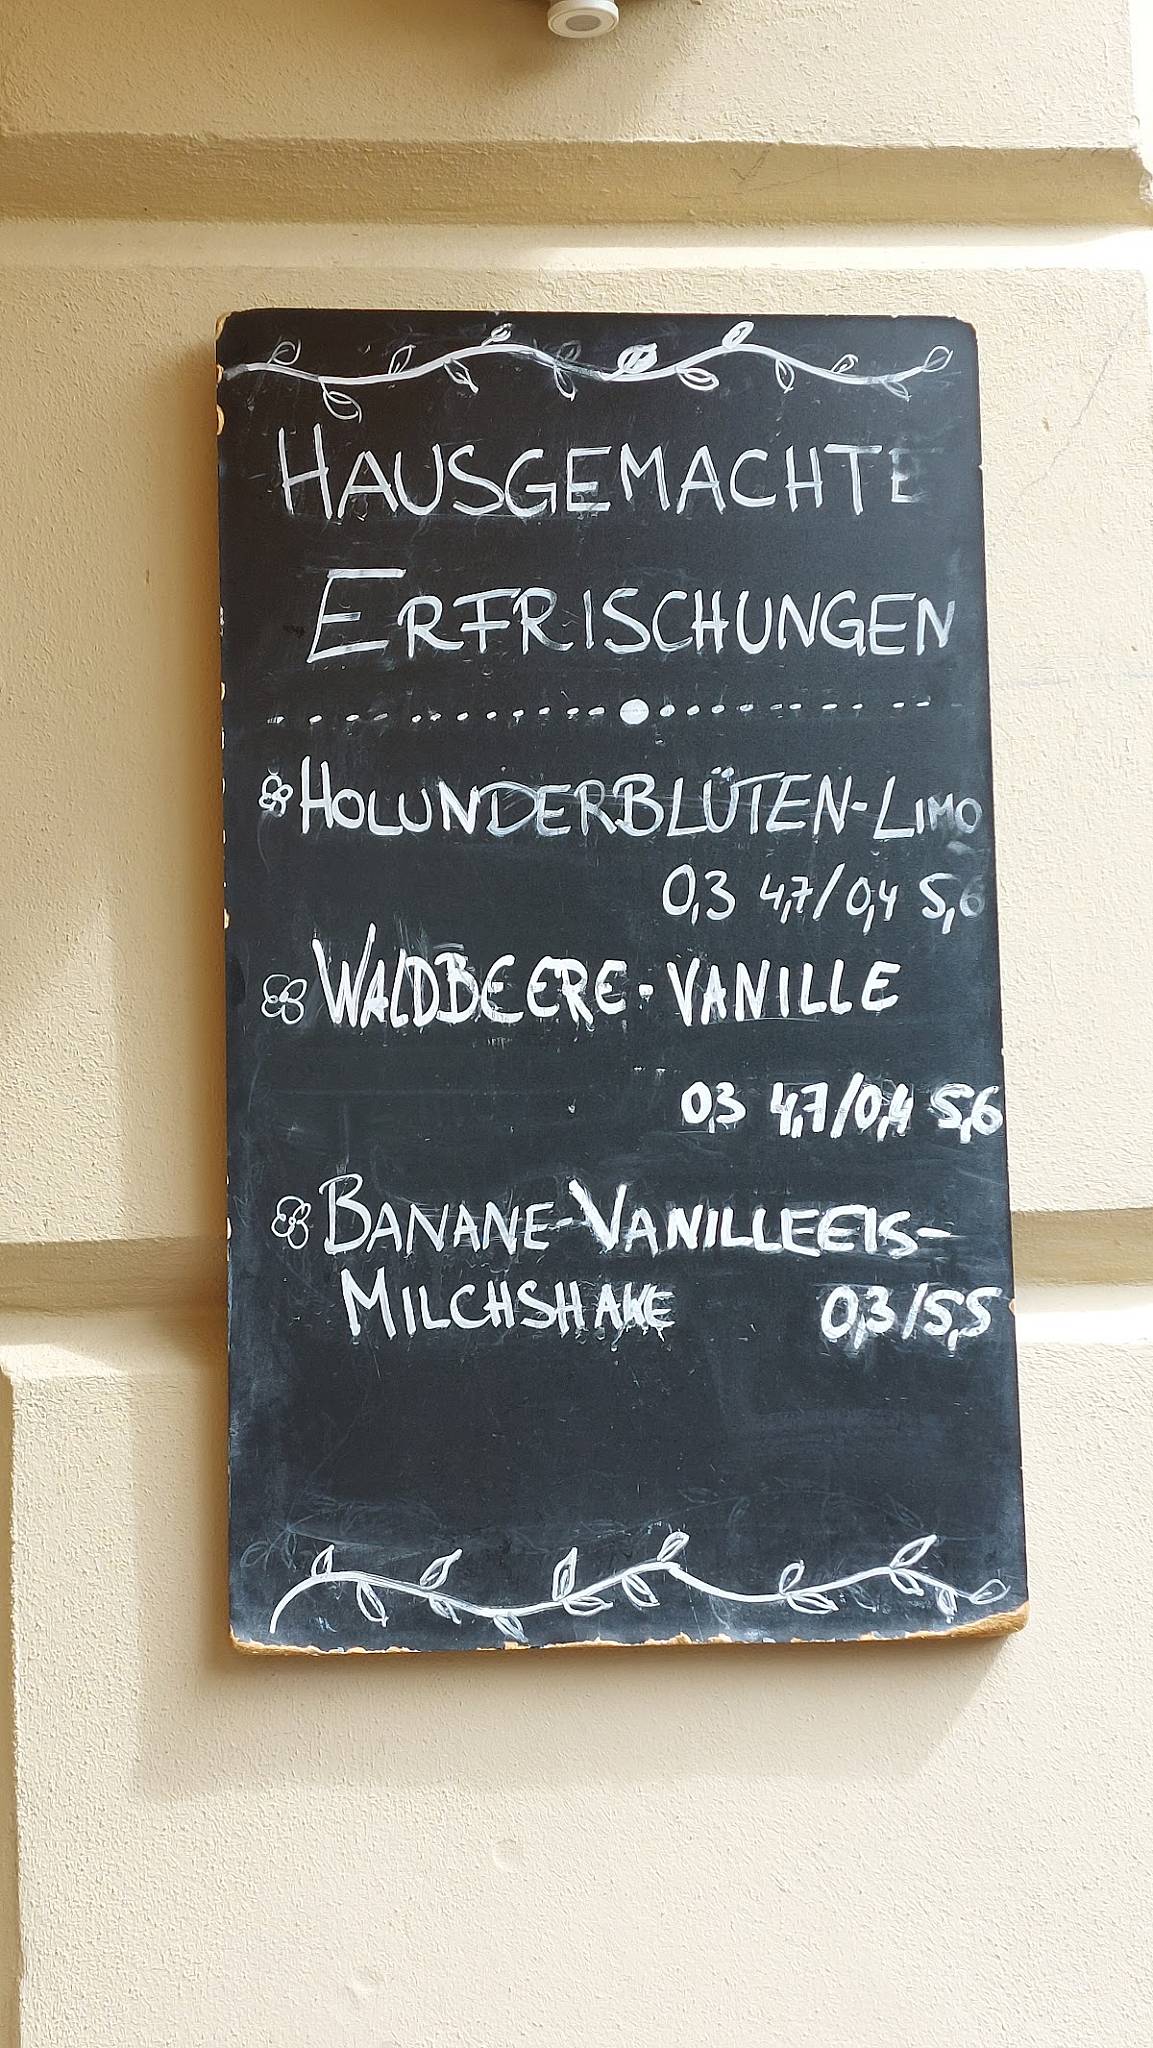 HAUSGEMACHTE
ERFRISCHUNGEN
HOLUNDERBLÜTEN-LIMO
0,3 4,7/0,4 5,6
WALDBEERE-VANILLE
0,3 4,7/0,4 5,6
BANANE-VANILLEEIS-
MILCHSHAKE 0,3/5,5